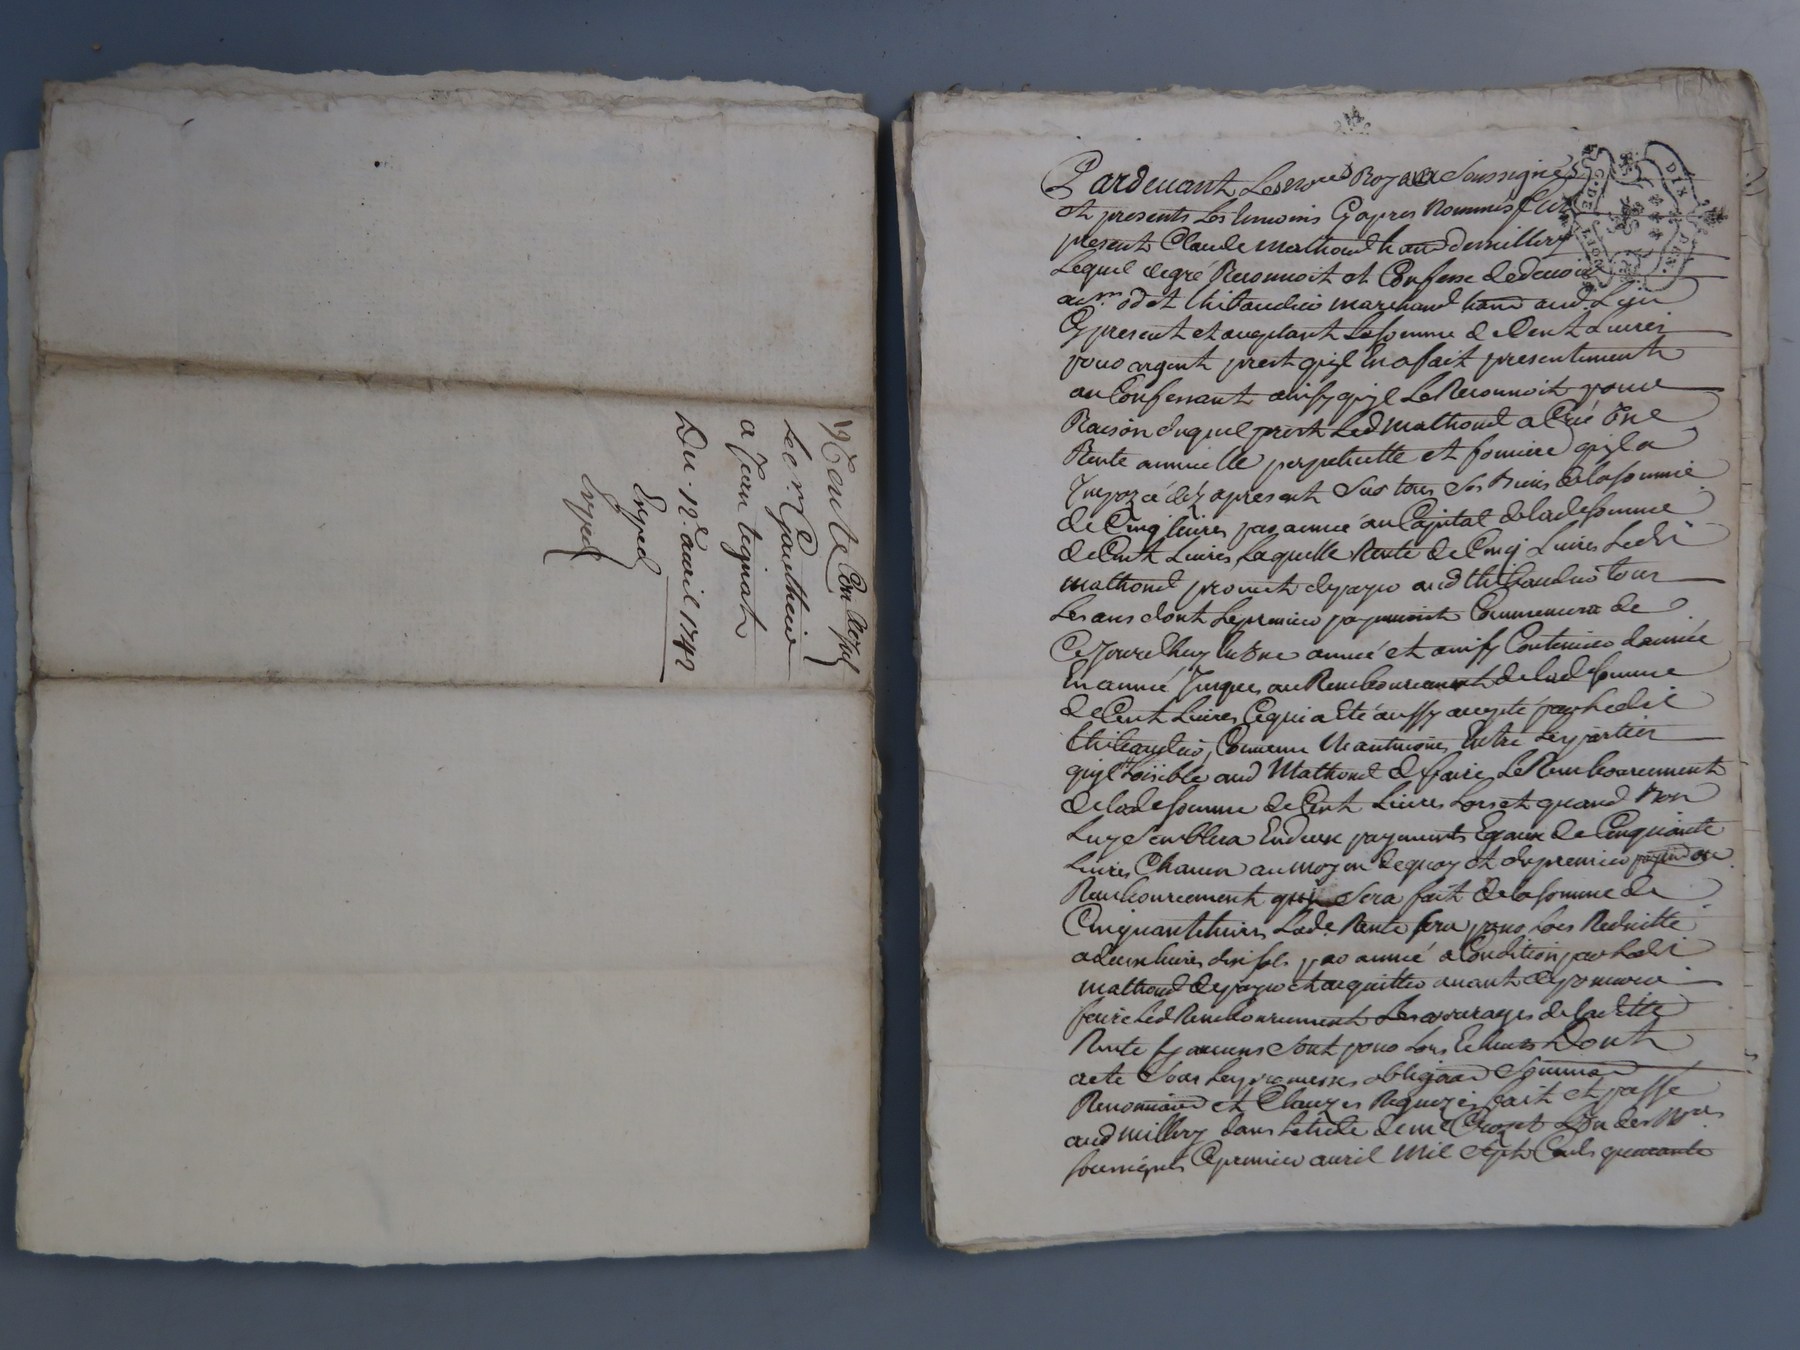 Vente Con
Le s.r Gauthier
a Jean tignat
Du 12.e avril 1742
Exped
Exped
G. DE LYON
DIX DEN.
Pardeuant Les No.res Royaux Soussignés
et presents les temoins Cy apres Nommés fut
present Claude Mathoud h and de millery
Lequel de gré Reconnoit et Confesse de deuoir
au m.r odet thibaudier marchand hand aud Lyon
Cy present et aceptant La somme de Cent Liures
pour argent prest qu'il En a fait presentement
au Confessant ainsy qu'il Le Reconnoit pour
Raison duquel prest Led Mathoud a Créé Une
Rente annuelle perpetuelle et fonciere qu'il a
Impozé déz apresent sur tous ses Biens de la somme
de Cinq liures par année au Capital de lade somme
de Cent Liures, Laquelle Rente de Cinq Liures Ledit
Mathoud promet de payer aud thibaudier tous
Les ans dont Le premier payement Commencera de
Ce jourdhuy En Une année et ainsy Continuer d'année
En année Jusques au Remboursement de lade somme
de Cent Liures Ce qui a Eté aussy accepté par Ledit
thibaudier, Conuenu Neantmoins Entre Les parties
qu'il Loisible aud Mathoud de faire Le Remboursement
de lade somme de Cent Liures Lors et quand Bon
Luy Semblera En deux payements Egaux de Cinquante
Liures Chacun au moyen de quoy et du premier
Remboursement qui Sera fait de la somme de
Cinquante liures Lade Rente sera pour Lors Reduitte
a deux liures dix sols par année a Condition par Ledit
Mathoud de payer et acquitter auant de pouuoir
faire Led Remboursement Les arrerages de la ditte
Rente sy aucuns sont pour Lors Echeus Dont
acte sous Les promesses obligaons soumions
Renonciaons et Clauzes Requizes fait et passé
aud millery dans L'etude de me Crozet L'un des No.res
soussignés Ce premier auril Mil Sept Cents quarante